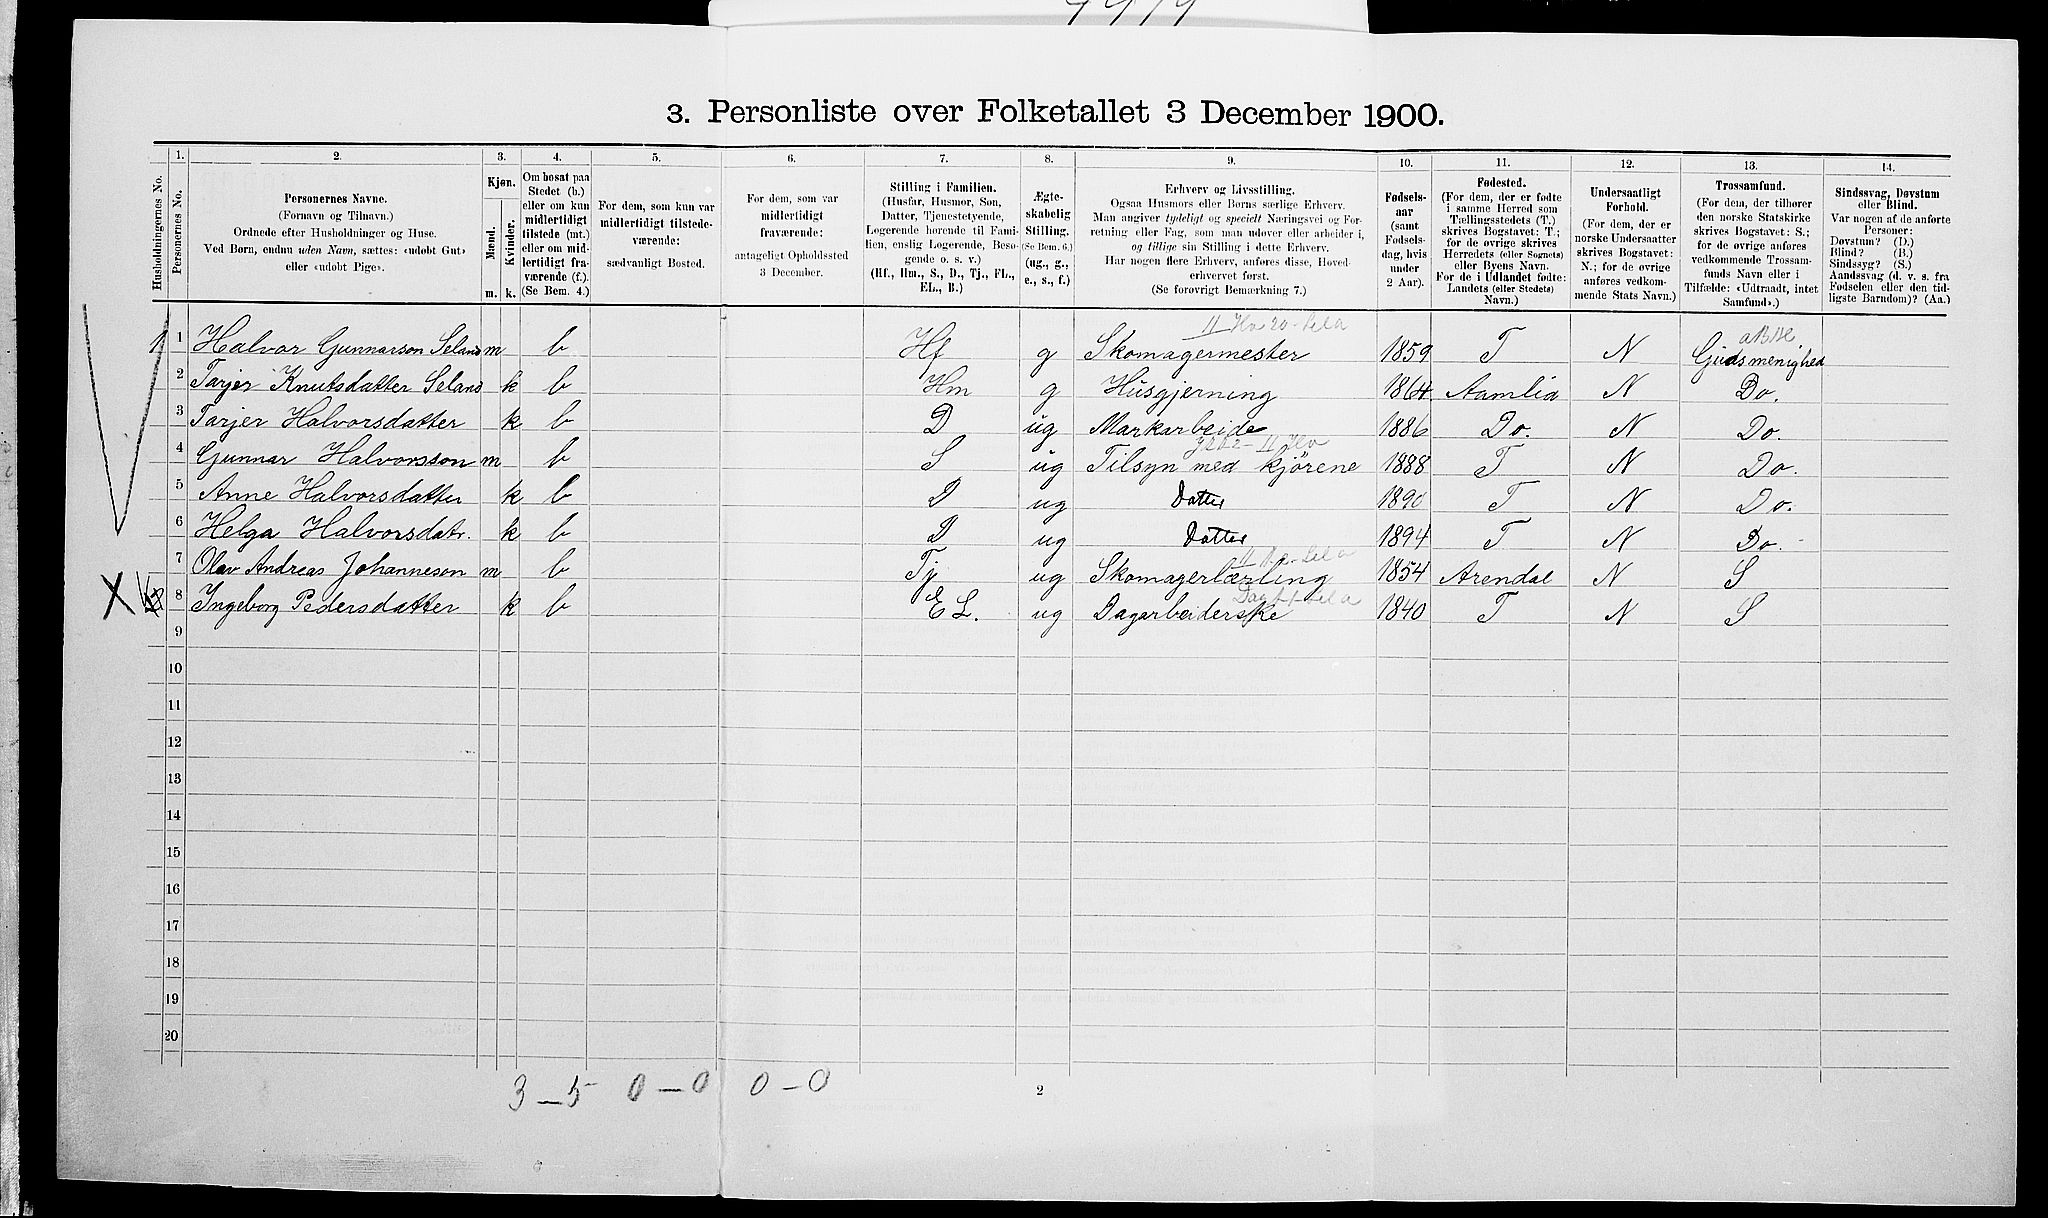 3. Personliste over Folketallet 3 December 1900.
Husholdningernes No.
1.
Personernes No.
2.
Personernes Navne.
(Fornavn og Tilnavn.)
Ordnede efter Husholdninger og Huse.
Ved Børn, endnu uden Navn, sættes: «udøbt Gut»
eller «udøbt Pige».
3.
Kjøn.
Mænd.
Kvinder.
m.
k.
4.
Om bosat paa
Stedet (b.)
eller om kun
midlertidigt
tilstede (mt.)
eller om mid-
lertidigt fra-
værende (f.).
(Se Bem. 4.)
5.
For dem, som kun var
midlertidigt tilstede-
værende:
sædvanligt Bosted.
6.
For dem, som var
midlertidigt
fraværende:
antageligt Opholdssted
3 December.
7.
Stilling i Familien.
(Husfar, Husmor, Søn,
Datter, Tjenestetyende,
Logerende hørende til Fami-
lien, enslig Logerende, Besø-
gende o. s. v.)
(Hf., Hm., S., D., Tj., FL.,
EL., B.)
8.
Ægte-
skabelig
Stilling.
(Se Bem. 6.)
(ug., g.,
e., s., f.)
9.
Erhverv og Livsstilling.
Ogsaa Husmors eller Børns særlige Erhverv.
Man angiver tydeligt og specielt Næringsvei og For-
retning eller Fag, som man udøver eller arbeider i,
og tillige sin Stilling i dette Erhverv.
Har nogen flere Erhverv, anføres disse, Hoved-
erhvervet først.
(Se forøvrigt Bemærkning 7.)
10.
Fødsels-
aar
(samt
Fødsels-
dag, hvis
under
2 Aar).
11.
Fødested.
(For dem, der er fødte
i samme Herred som
Tællingsstedets (T.)
skrives Bogstavet: T.;
for de øvrige skrives
Herredets (eller Sognets)
eller Byens Navn.
For de i Udlandet fødte:
Landets (eller Stedets)
Navn.)
12.
Undersaatligt
Forhold.
(For dem, der er
norske Undersaatter
skrives Bogstavet:
N.; for de øvrige
anføres vedkom-
mende Stats Navn.)
13.
Trossamfund.
(For dem, der tilhører
den norske Statskirke
skrives Bogstavet: S.;
for de øvrige anføres
vedkommende Trossam-
funds Navn eller i
Tilfælde: «Udtraadt, intet
Samfund».)
14.
Sindssvag, Døvstum
eller Blind.
Var nogen af de anførte
Personer:
Døvstum? (D.)
Blind? (B.)
Sindssyg? (S.)
Aandssvag (d. v. s. fra
Fødselen eller den tid-
ligste Barndom)? (Aa.)
1 1 Halvor Gunnarson Seland m b Hf g Skomagermester 1859 T N Gudsmenighed
2 Tarjer Knutsdatter Seland k b Hm g Husgjerning 1864 Aamlid N Do.
3 Tarjer Halvorsdatter k b D ug Markarbeide 1886 Do. N Do.
4 Gunnar Halvorsson m b S ug Tilsyn med kjørene 1888 T N Do.
5 Anne Halvorsdatter k b D ug Datter 1890 T N Do.
6 Helga Halvorsdatr. k b D ug Datter 1894 T N Do.
7 Olav Andreas Johanneson m b Tj ug Skomagerlærling 1854 Arendal N S
X 8 Ingeborg Pedersdatter k b EL. ug Dagarbeiderske 1840 T N S
9
10
11
12
13
14
15
16
17
18
19
20
3 – 5 0 – 0 0 – 0
2